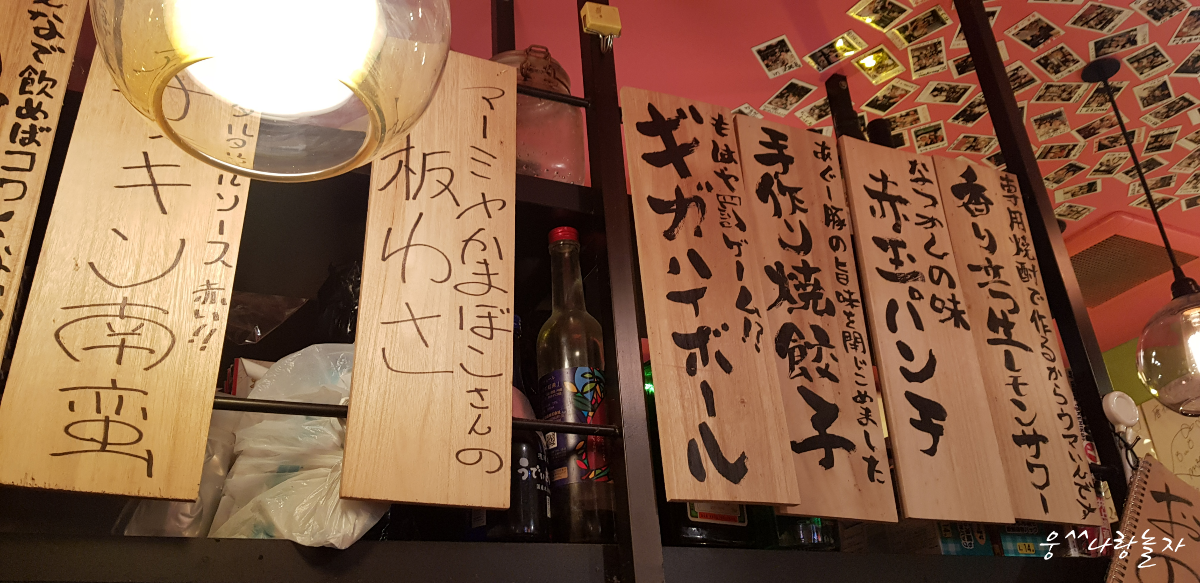 んなで飲めばコワくな
タルソース 赤い!!
チキン南蛮
マーミヤかまぼこさんの
板わさ
もはや罰ゲーム!?
ギガハイボール
あぐー豚の旨味を閉じこめました
手作り焼餃子
なつかしの味
赤玉パンチ
専用焼酎で作るからウマいんだ
香り立つ生レモンサワー
웅^^나랑놀자